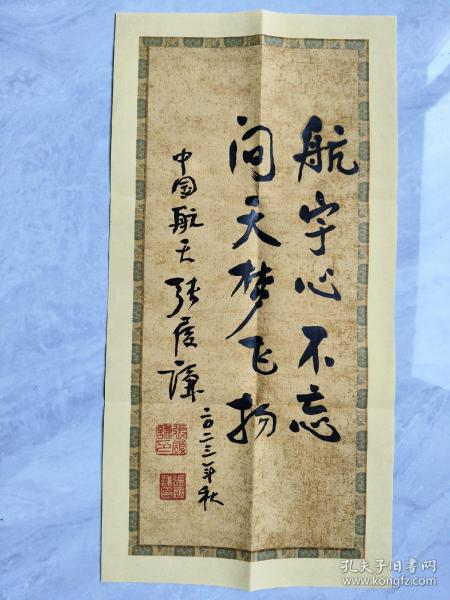 航宇心不忘
问天梦飞扬
中国航天 张履谦
二〇二三年秋
孔夫子旧书网
www.kongfz.com